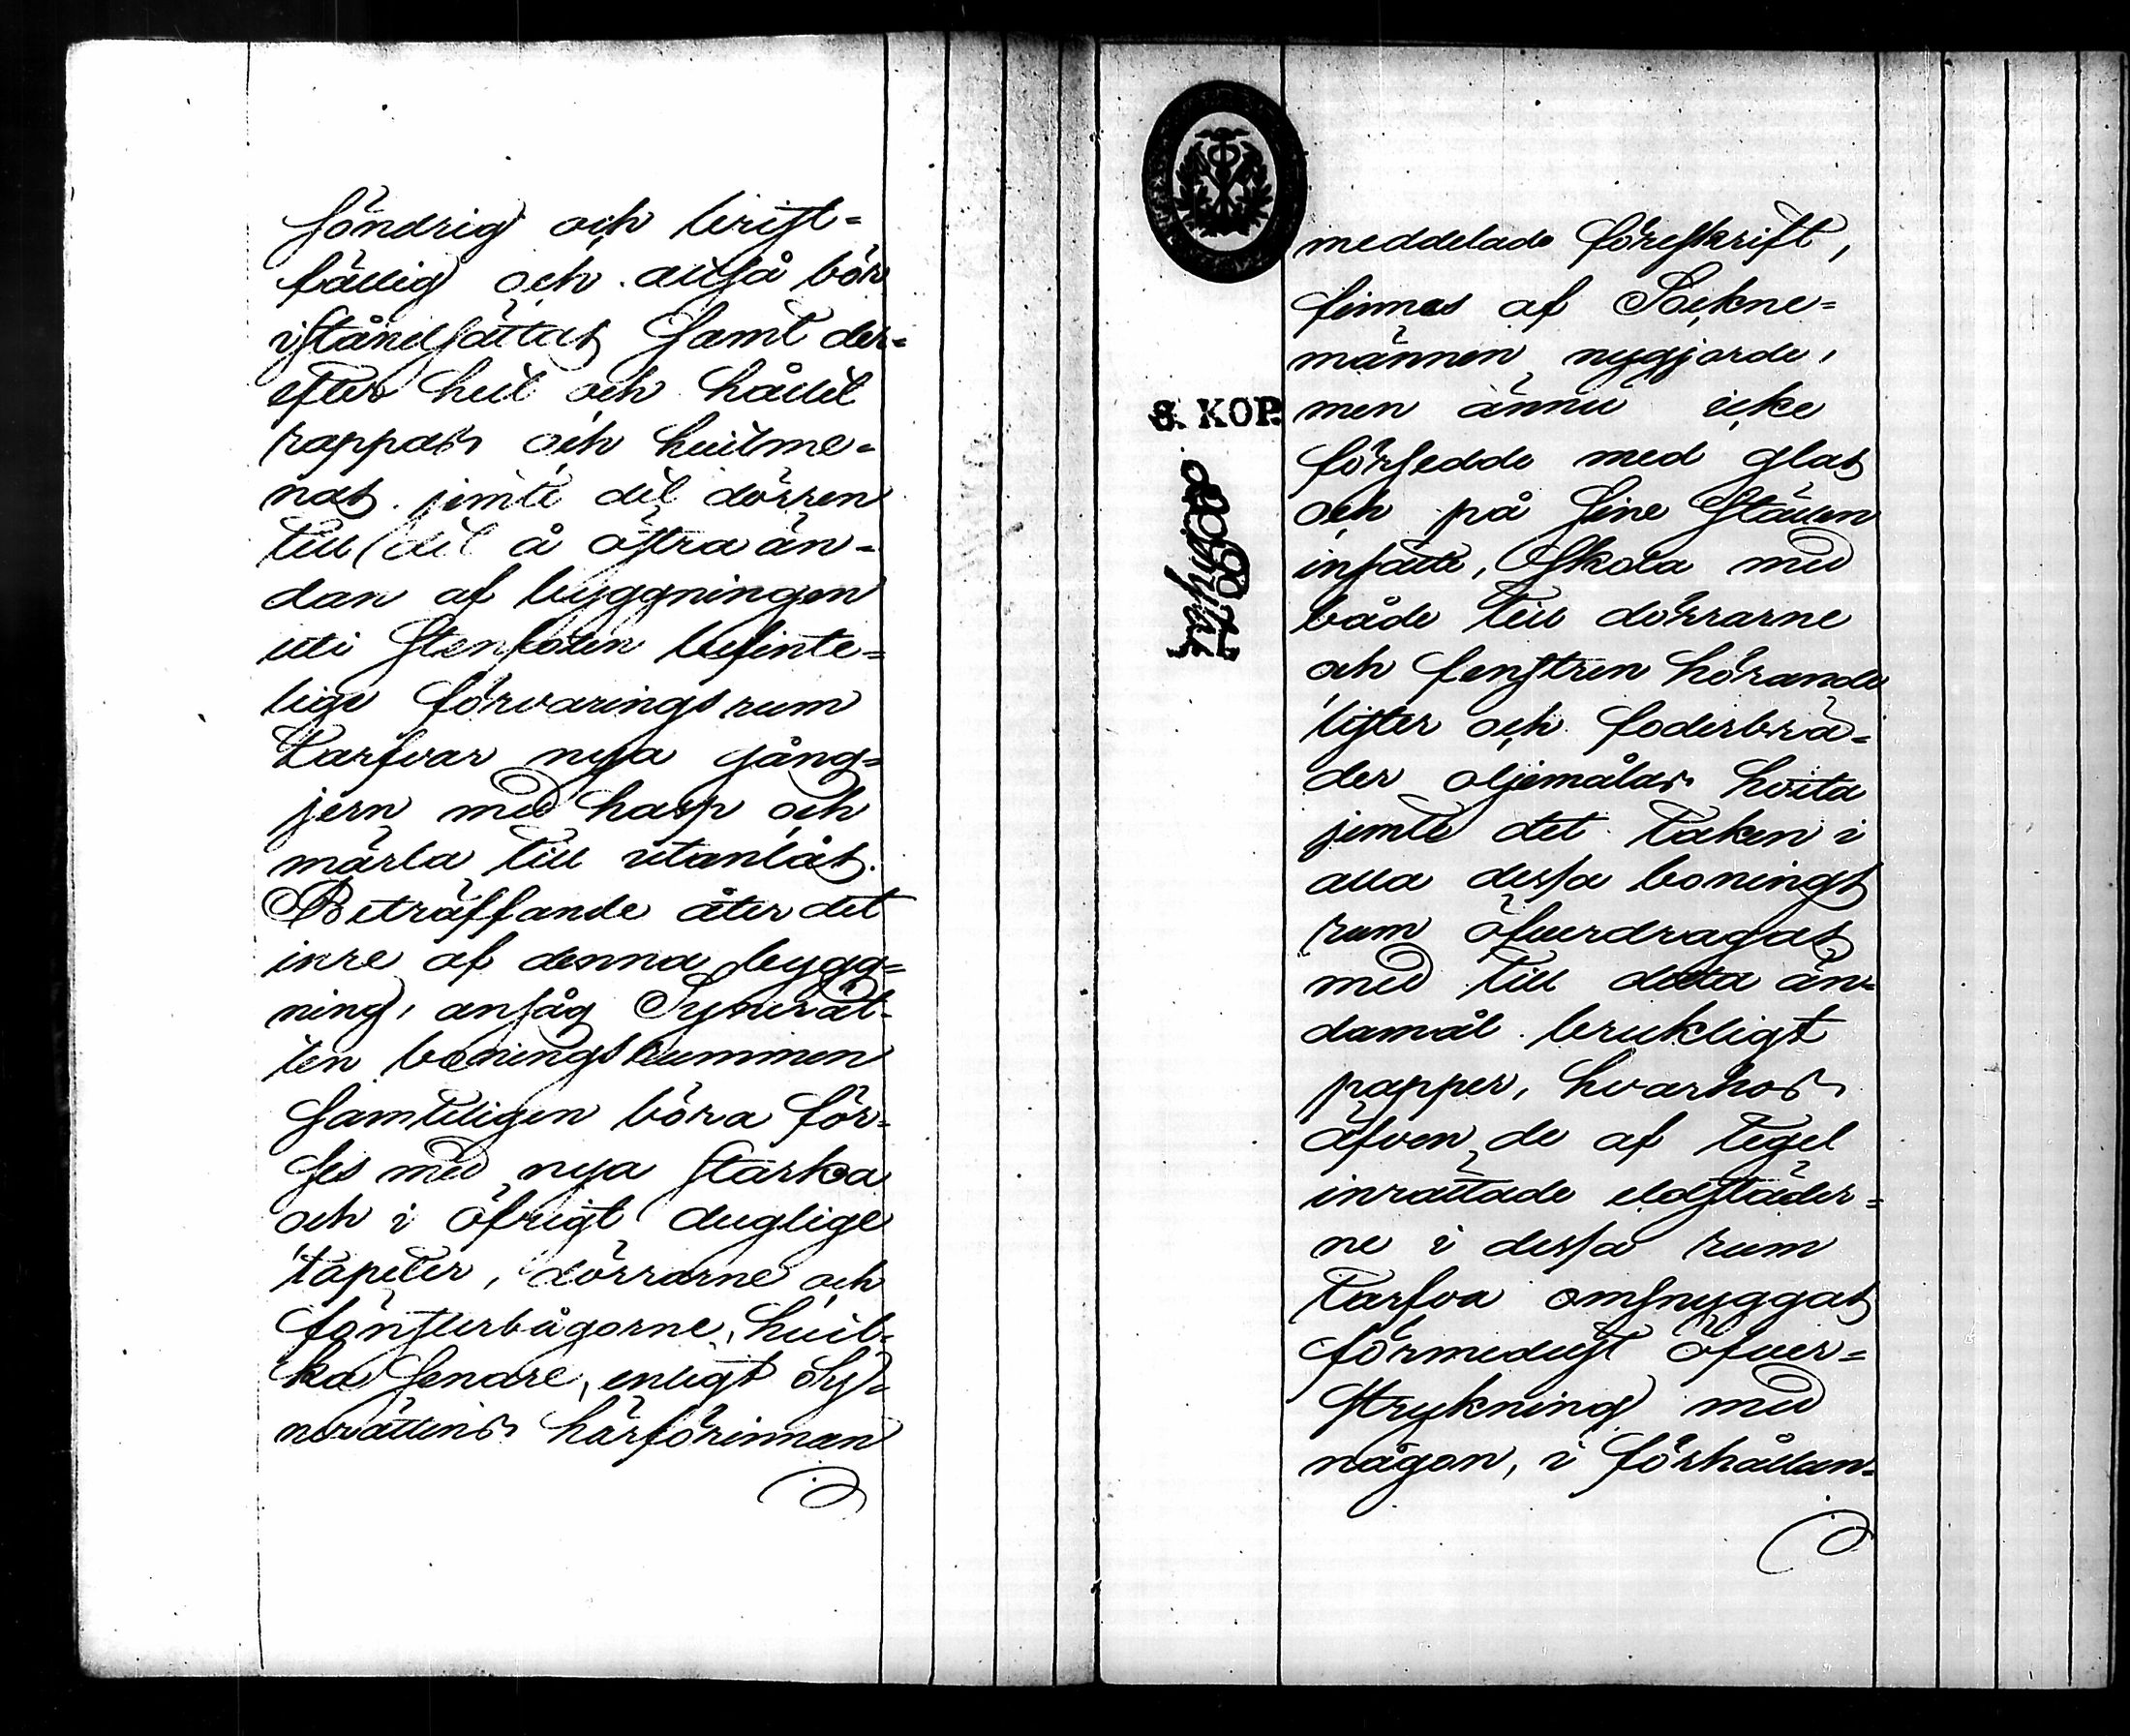 söndrig och brist=
fällig och altså bör
iståndsättas samt der=
efter hell och hållet
rappas och huitme=
nas jemte det dörren
till det å östra än=
dan af byggningen
uti stenfoten befinte=
lige förvaringsrum
tarfvar nya gång=
jern med hasp och
märla till utanlås.
Beträffande åter det
inre af denna bygg=
ning, ansåg Synerät=
ten boningsrummen
samteligen böra för=
ses med nya starka
och i öfrigt duglige
tapeter, dörrarne och
fönsterbågorne, huil=
ka senare, enligt Sy=
nerättens härförinnan
8. KOP.
meddelade föreskrift,
finnas af Sockne=
männen nygjorde,
men ännu icke
försedde med glas
och på sine ställen
insatte, Skola med
både till dörrarne
och fenstren hörande
lister och foderbrä=
der oljemålas hvita
jemte det taken i
alla dessa bonings
rum öfverdragas
med till detta än=
damål brukligt
papper, hvarhos
äfven de af tegel
inrättade eldstäder=
ne i dessa rum
tarfva omsnyggas
förmedelst öfver=
strykning med
någon, i förhållan=